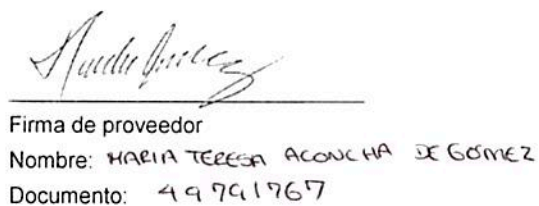 Firma de proveedor
Nombre: MARIA TERESA ACONCHA DE GOMEZ
Documento: 49791767